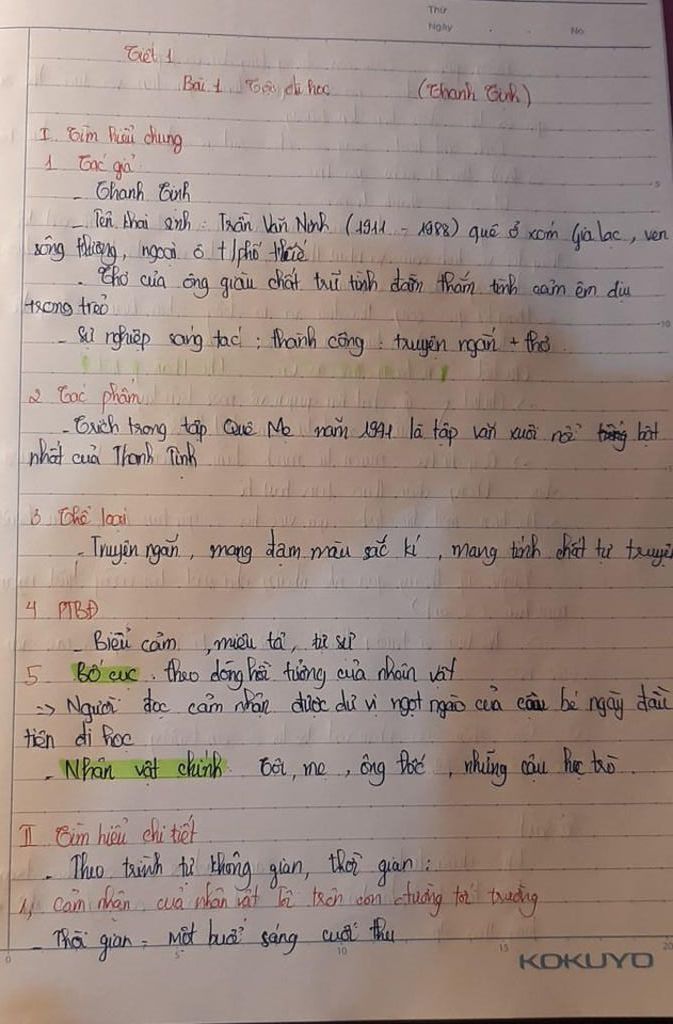 Thứ
Ngày . . No.
Tiết 1
Bài 1 Tôi đi học (Thanh Tịnh)
I Tìm hiểu chung
1 Tác giả
- Thanh Tịnh
- Tên khai sinh : Trần Văn Ninh (1911 - 1988) quê ở xóm Gia Lạc, ven
sông Hương, ngoại ô t/phố Huế
- Thơ của ông giàu chất trữ tình đằm thắm tình cảm êm dịu
trong trẻo
- Sự nghiệp sáng tác : thành công : truyện ngắn + thơ.
2 Tác phẩm
- Trích trong tập Quê Mẹ năm 1941 là tập văn xuôi nổi bật
nhất của Thanh Tịnh
3 Thể loại
- Truyện ngắn, mang đạm màu sắc kí, mang tính chất tự truyện
4 PTBĐ
- Biểu cảm, miêu tả, tự sự
5 Bố cục : theo dòng hồi tưởng của nhân vật
=> Người đọc cảm nhận được dư vị ngọt ngào của cậu bé ngày đầu
tiên đi học
- Nhân vật chính : Tôi, mẹ, ông đốc, những cậu học trò.
II Tìm hiểu chi tiết
- Theo trình tự không gian, thời gian :
1, Cảm nhận của nhân vật Tôi trên con đường tới trường
- Thời gian = một buổi sáng cuối thu
0 5 10 15 20
KOKUYO